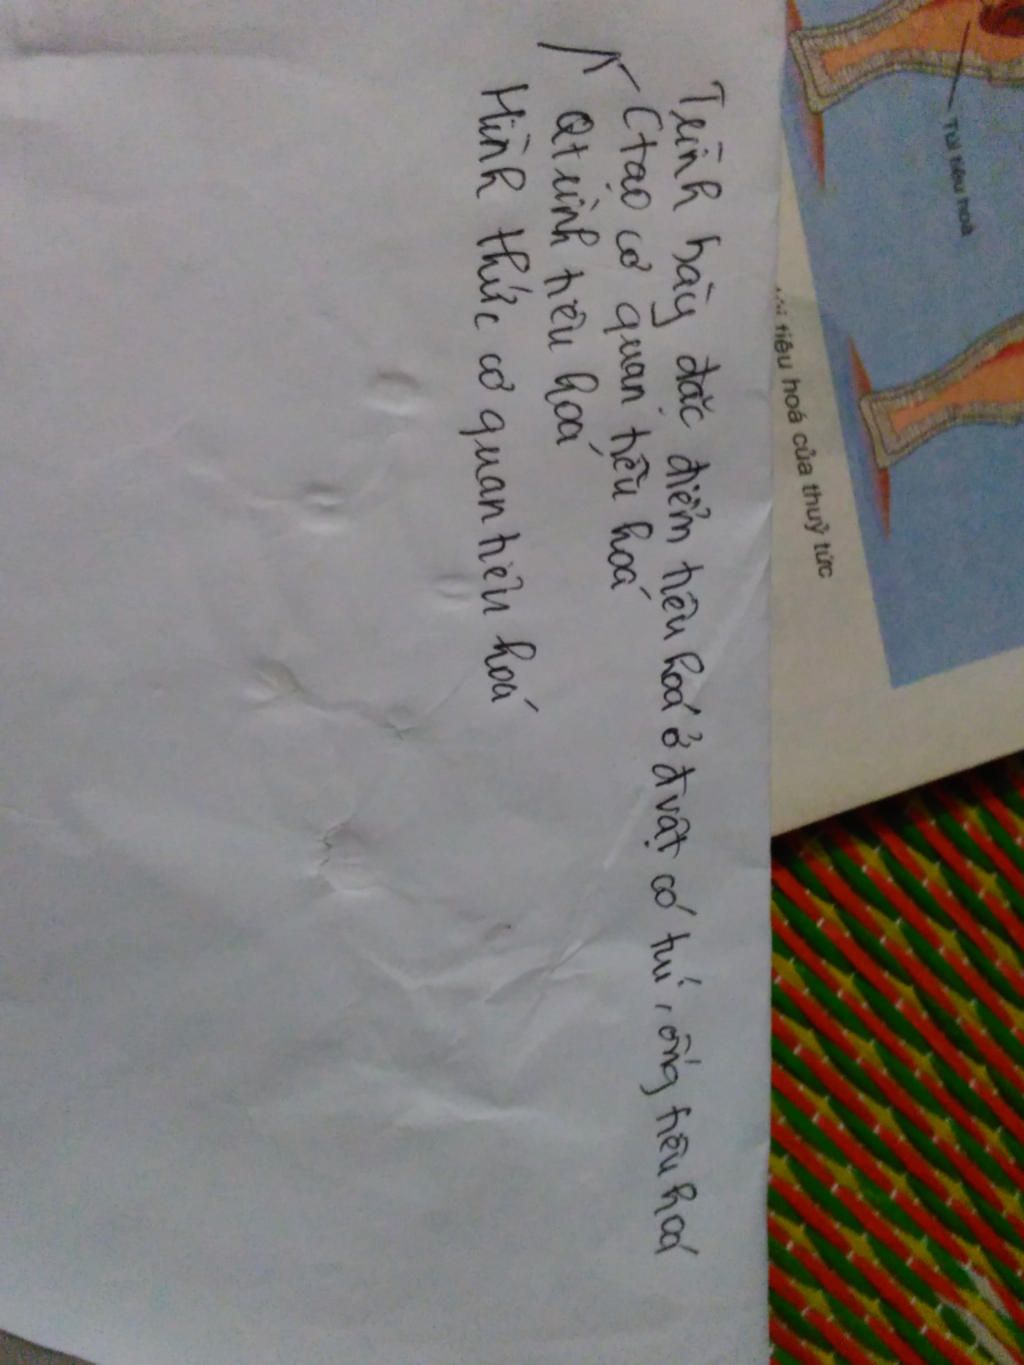 Túi tiêu hoá
tiêu hoá của thuỷ tức
Trình bày đặc điểm tiêu hoá ở đvật có túi, ống tiêu hoá
Ctạo cơ quan tiêu hoá
Qtrình tiêu hoá
Hình thức cơ quan tiêu hoá